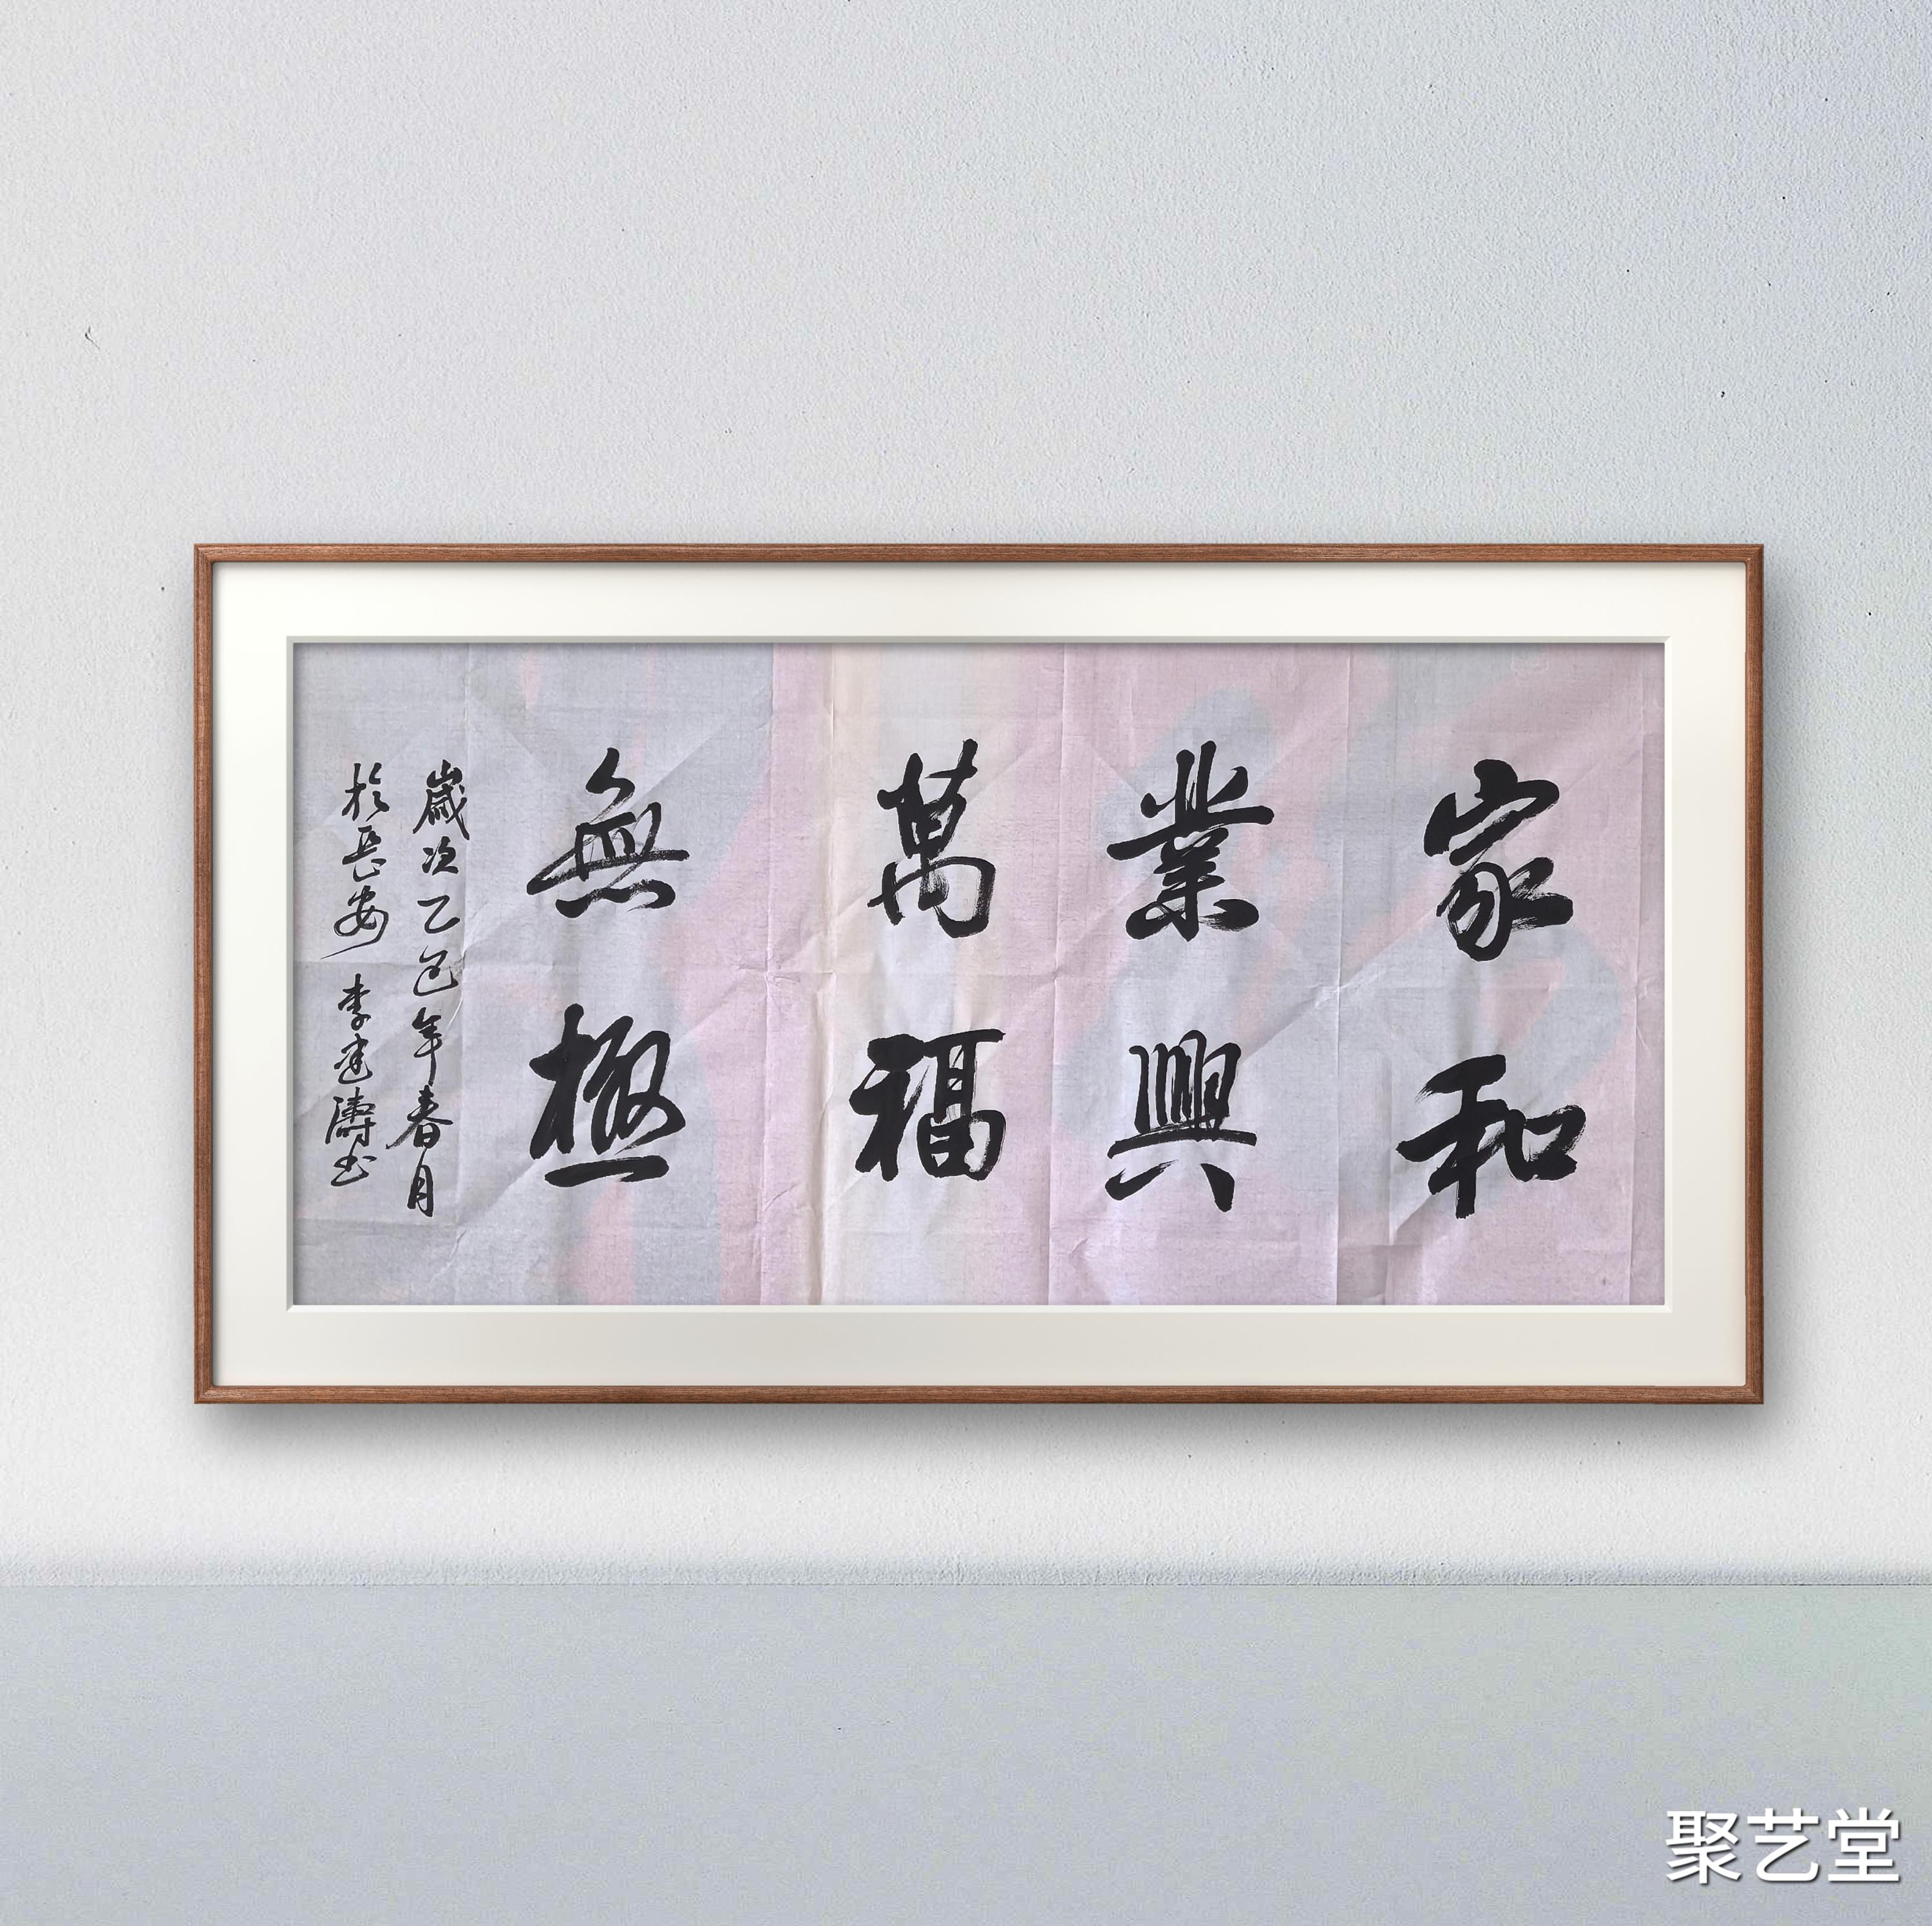 家和
業興
萬福
無極
歲次乙巳年春月
於長安 李建濤书
聚艺堂